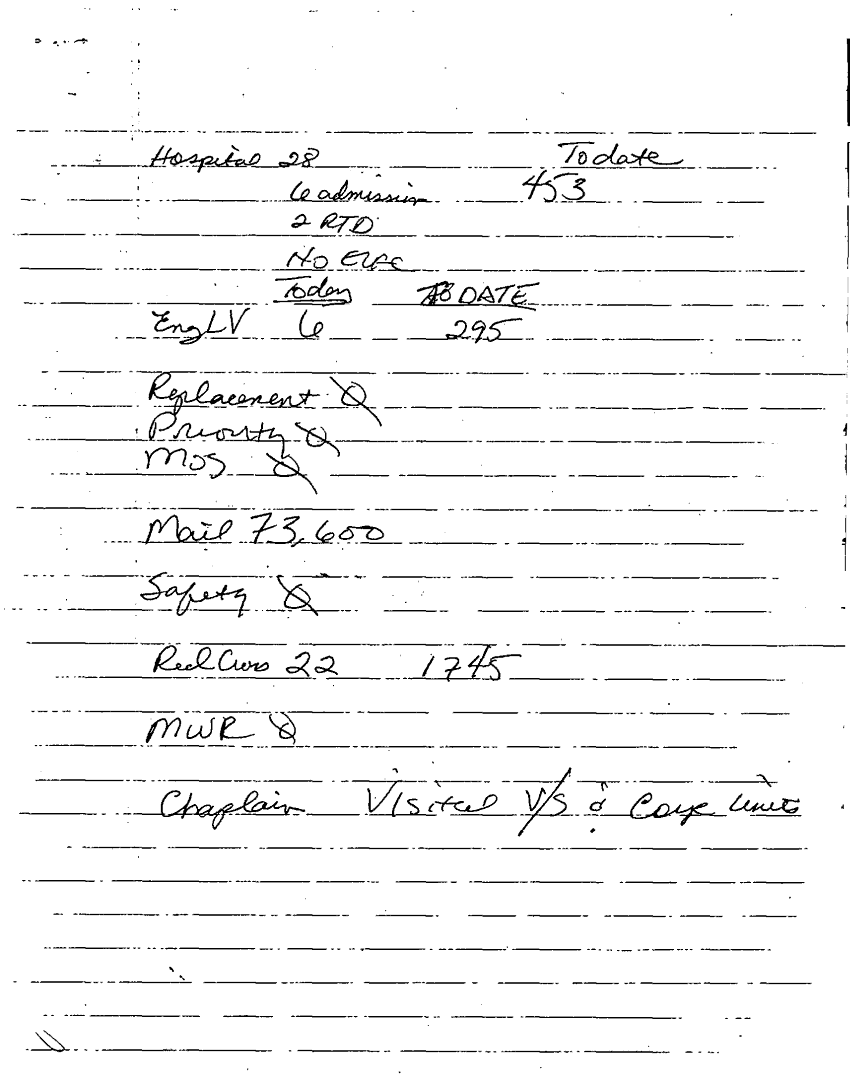 Hospital 28 To date
6 admission 453
2 RTD
NO EVAC
Today TO DATE
Eng LV 6 295
Replacement Ø
Priority Ø
MOS Ø
Mail 73,600
Safety Ø
Red Cross 22 1745
MWR Ø
Chaplain Visited V/S Corps units